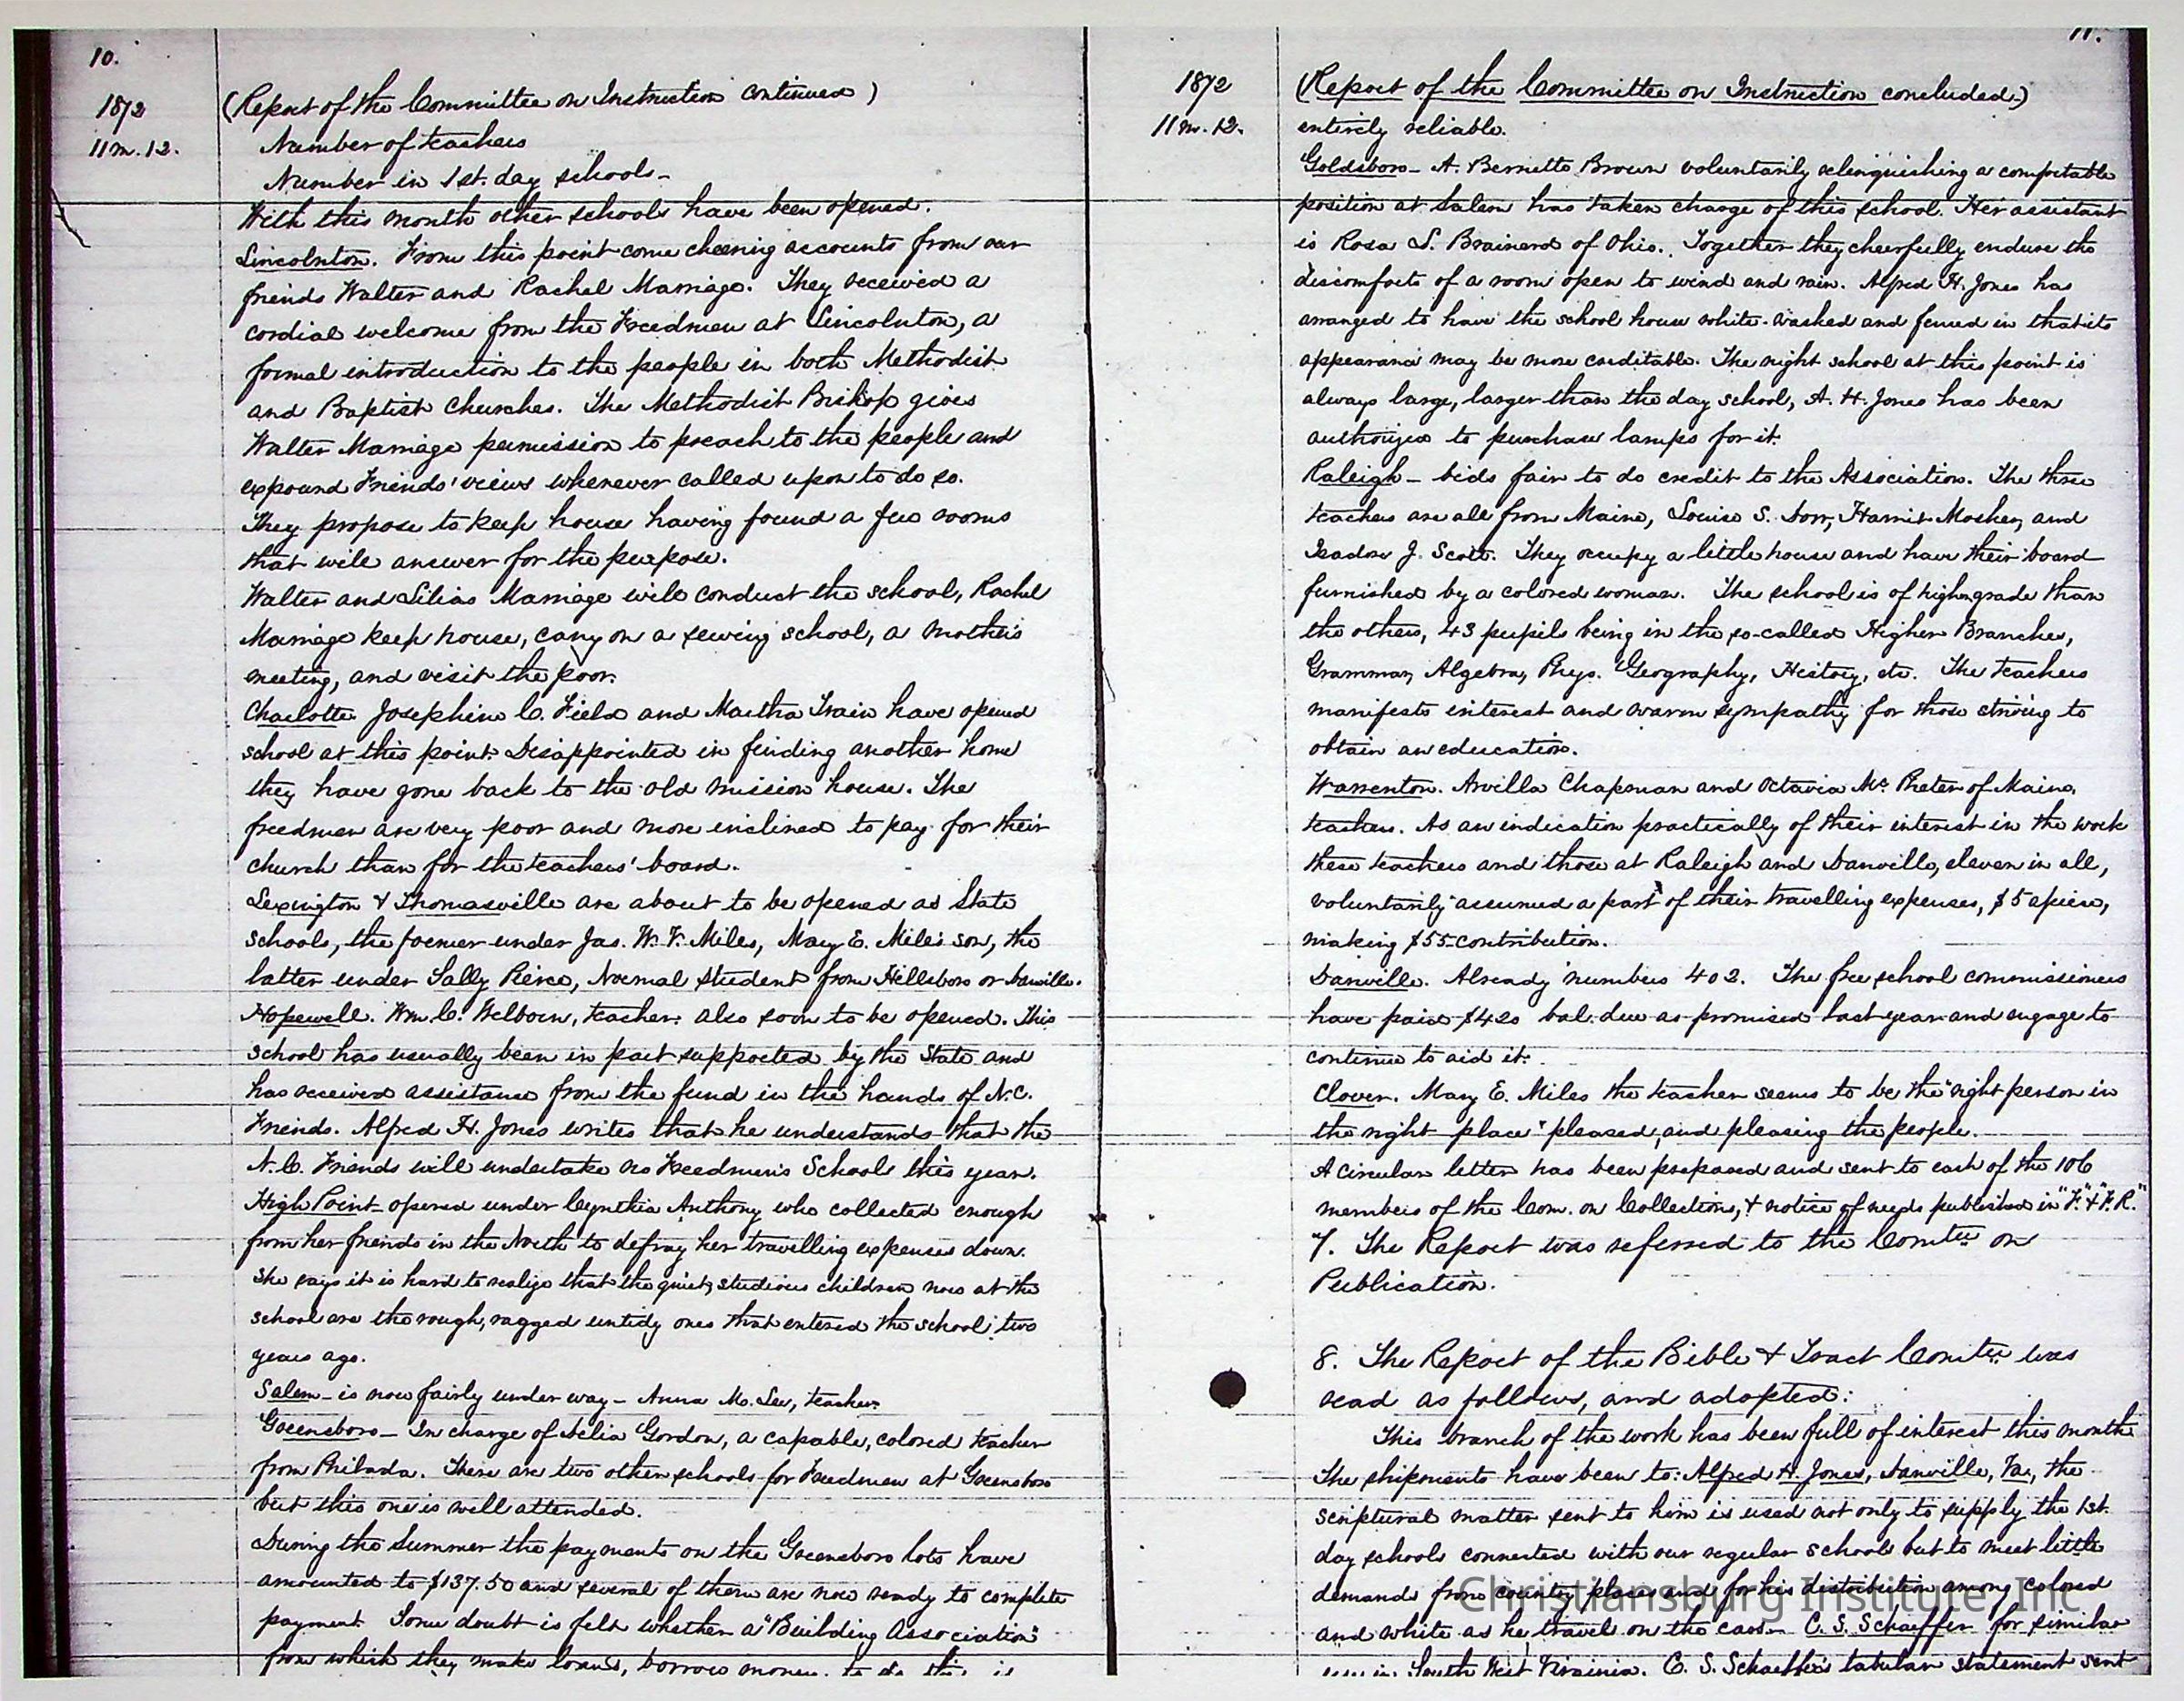 10.
1872
11 m. 12.
(Report of the Committee on Instruction continued)
Number of teachers
Number in 1st. day schools -
With this month other schools have been opened.
Lincolnton. From this point come cheering accounts from our
friends Walter and Rachel Marriage. They received a
cordial welcome from the Freedmen at Lincolnton, a
formal introduction to the people in both Methodist
and Baptist Churches. The Methodist Bishop gives
Walter Marriage permission to preach to the people and
expound Friends' views whenever called upon to do so.
They propose to keep house having found a few rooms
that will answer for the purpose.
Walter and Lilias Marriage will conduct the school, Rachel
Marriage keep house, carry on a sewing school, a mother's
meeting, and visit the poor.
Charlotte. Josephine C. Field and Martha Train have opened
school at this point. Disappointed in finding another home
they have gone back to the old mission house. The
freedmen are very poor and more inclined to pay for their
church than for the teachers' board.
Lexington & Thomasville are about to be opened as State
schools, the former under Jas. W. F. Miles, Mary E. Miles' son, the
latter under Sally Peirce, Normal student from Hillsboro or Danville.
Hopewell. Wm. C. Welborn, teacher: also soon to be opened. This
school has usually been in part supported by the State and
has received assistance from the fund in the hands of N.C.
Friends. Alfred H. Jones writes that he understands that the
N.C. Friends will undertake no Freedmen's Schools this year.
High Point - opened under Cynthia Anthony who collected enough
from her friends in the North to defray her travelling expenses down.
She says it is hard to realize that the quiet, studious children now at the
school are the rough, ragged untidy ones that entered the school two
years ago.
Salem - is now fairly under way - Anna M. Lee, teacher.
Greensboro - In charge of Delia Gordon, a capable, colored teacher
from Philada. There are two other schools for Freedmen at Greensboro
but this one is well attended.
During the Summer the payments on the Greensboro lots have
amounted to $137.50 and several of them are now ready to complete
payment. Some doubt is felt whether a "Building Association"
from which they make loans, borrow money to do this, is
11.
1872
11 m. 12.
(Report of the Committee on Instruction concluded.)
entirely reliable.
Goldsboro - A. Bernetta Brown voluntarily relinquishing a comfortable
position at Salem has taken charge of this school. Her assistant
is Rosa S. Brainerd of Ohio. Together they cheerfully endure the
discomforts of a room open to wind and rain. Alfred H. Jones has
arranged to have the school house white-washed and fenced in that its
appearance may be more creditable. The night school at this point is
always large, larger than the day school, A. H. Jones has been
authorized to purchase lamps for it.
Raleigh - bids fair to do credit to the Association. The three
teachers are all from Maine, Louise S. Dorr, Harriet Mosher, and
Isadore J. Scott. They occupy a little house and have their board
furnished by a colored woman. The school is of higher grade than
the others, 43 pupils being in the so-called Higher Branches,
Grammar, Algebra, Phys. Geography, History, etc. The teachers
manifests interest and warm sympathy for those striving to
obtain an education.
Warrenton. Arvilla Chapman and Octavia Mc Pheters of Maine,
teachers. As an indication practically of their interest in the work
these teachers and those at Raleigh and Danville, eleven in all,
voluntarily assumed a part of their travelling expenses, $5 apiece,
making $55 contribution.
Danville. Already numbers 402. The free school commissioners
have paid $420 bal. due as promised last year and engage to
continue to aid it.
Clover. Mary E. Miles the teacher seems to be the "right person in
the right place" pleased, and pleasing the people.
A circular letter has been prepared and sent to each of the 106
members of the Com. on Collections, & notice of needs published in "F." & "F. R."
7. The Report was referred to the Comtee on
Publication.
8. The Report of the Bible & Tract Comtee was
read as follows, and adopted:
This branch of the work has been full of interest this month
The shipments have been to: Alfred H. Jones, Danville, Va., the
scriptural matter sent to him is used not only to supply the 1st.
day schools connected with our regular schools but to meet little
demands from county places and for his distribution among colored
and white as he travels on the cars - C. S. Schaeffer for similar
uses in South West Virginia. C. S. Schaeffer's tabular statement sent
Christiansburg Institute, Inc